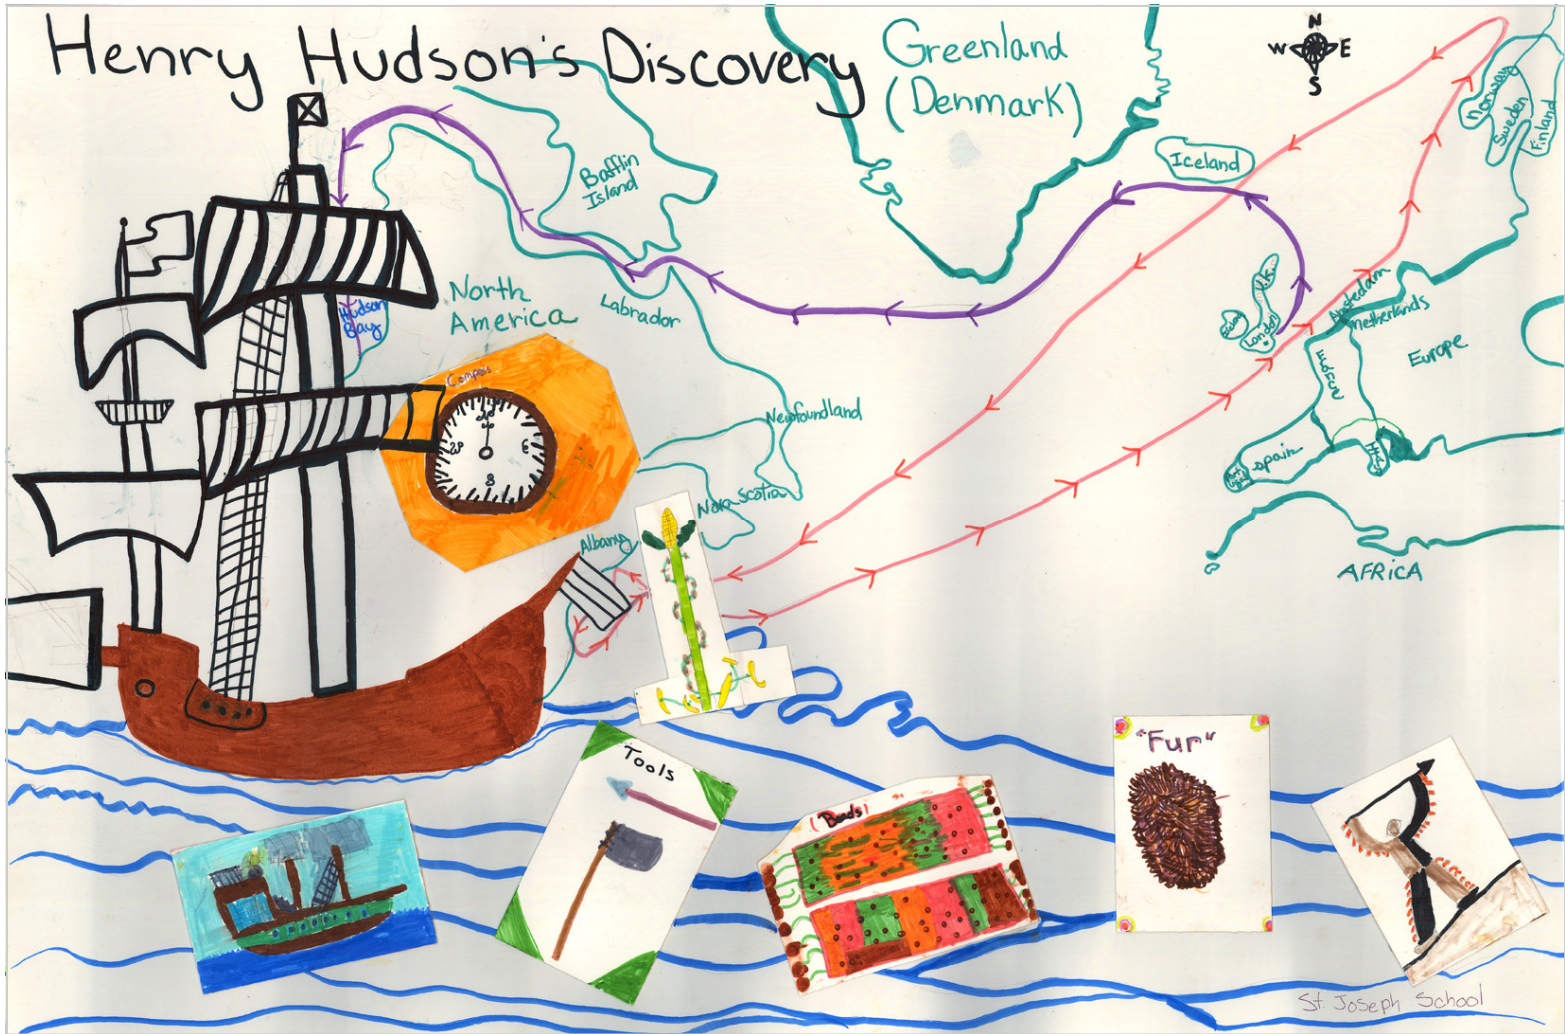 Henry Hudson's Discovery
Greenland
(Denmark)
N
W E
S
Norway
Sweden
Finland
Iceland
Bafflin
Island
North
America
Labrador
Hudson
Bay
U.K.
London
Amstedam
netherlands
Europe
Compass
Newfoundland
Spain
Nova Scotia
Albany
AFRICA
Tools
(Beads)
"Fur"
St. Joseph School